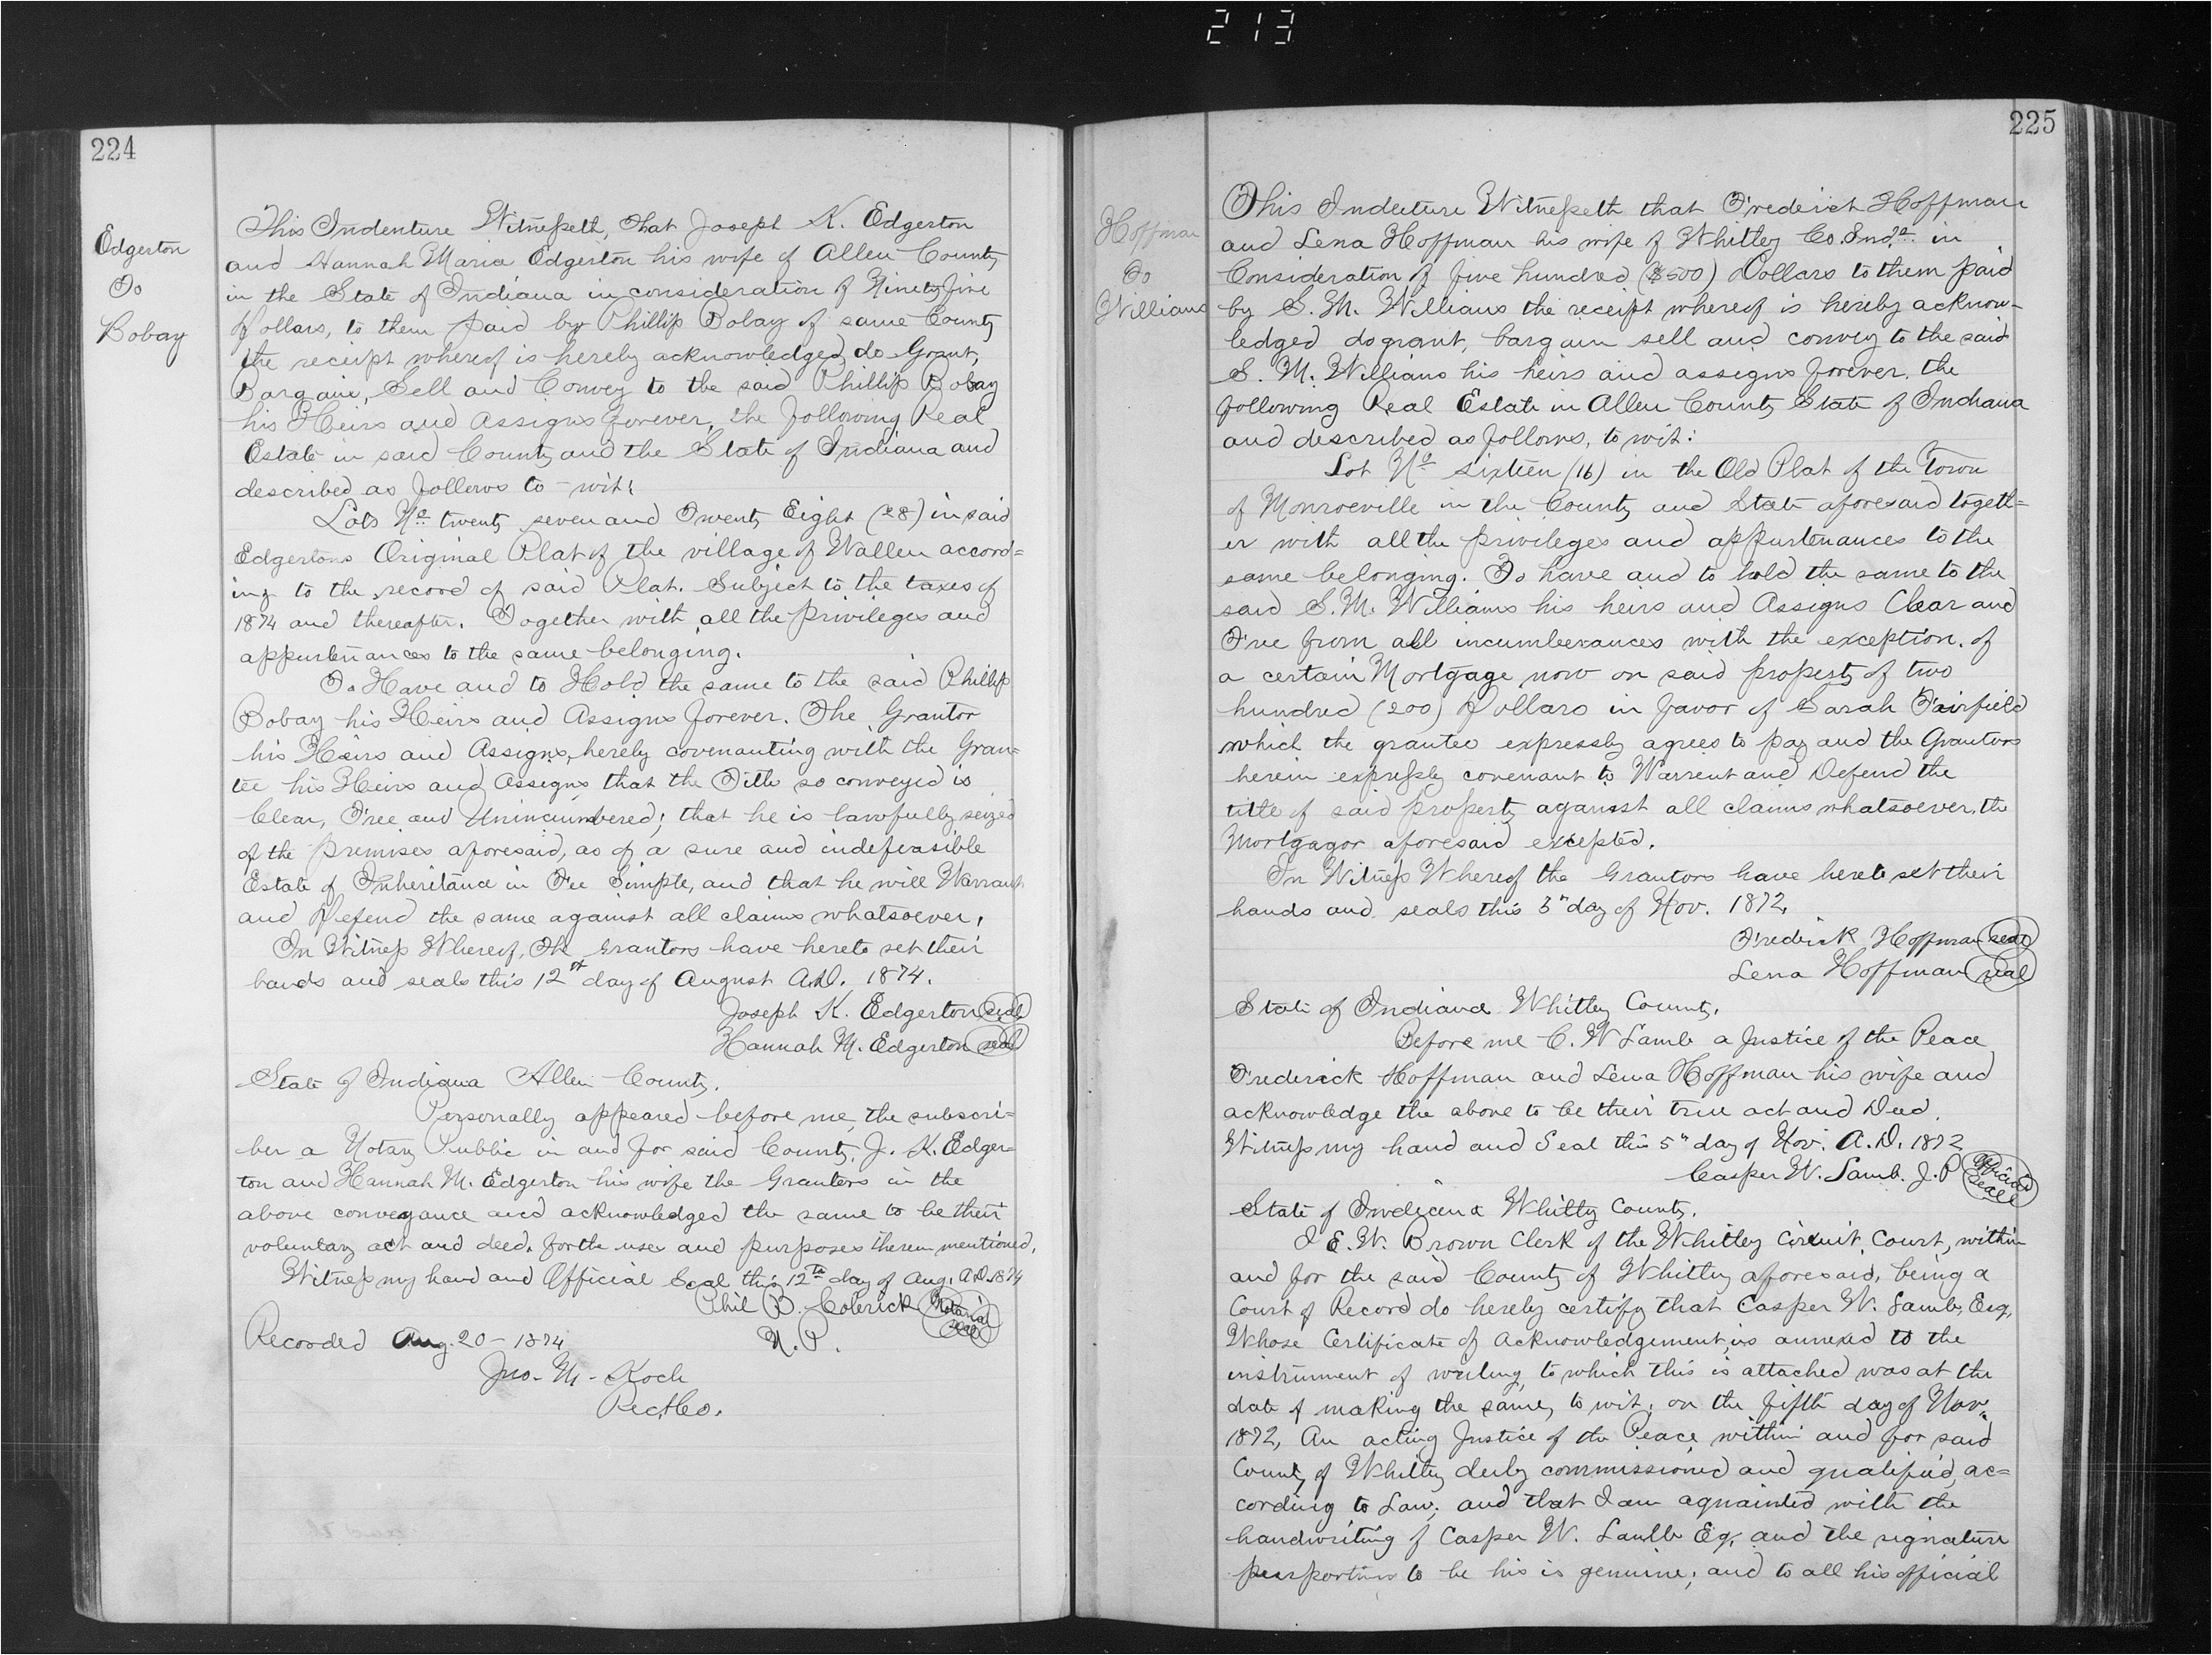 213
224
Edgerton
To
Bobay
This Indenture Witnesseth, That Joseph K. Edgerton
and Hannah Maria Edgerton his wife of Allen County
in the State of Indiana in consideration of Ninety five
Dollars, to them paid by Phillip Bobay of same County
the receipt whereof is hereby acknowledged, do Grant,
Bargain, Sell and Convey to the said Phillip Bobay
his Heirs and Assigns forever, the following Real
Estate in said County and the State of Indiana and
described as follows to-wit:
Lots No. twenty seven and Twenty Eight (28) in said
Edgertons Original Plat of the village of Wallen accord=
ing to the record of said Plat. Subject to the taxes of
1874 and thereafter. Together with all the privileges and
appurtenances to the same belonging.
To Have and to Hold the same to the said Phillip
Bobay his Heirs and Assigns forever. The Grantor
his Heirs and Assigns, hereby covenanting with the Gran=
tee his Heirs and Assigns that the Title so conveyed is
Clear, Free and Unincumbered; that he is lawfully seized
of the premises aforesaid, as of a sure and indefeasible
Estate of Inheritance in Fee Simple, and that he will Warrant
and Defend the same against all claims whatsoever.
In Witness Whereof, The Grantors have hereto set their
hands and seals this 12th day of August A.D. 1874.
Joseph K. Edgerton seal
Hannah M. Edgerton seal
State of Indiana Allen County.
Personally appeared before me, the subscri=
ber a Notary Public in and for said County, J. K. Edger=
ton and Hannah M. Edgerton his wife the Grantors in the
above conveyance and acknowledged the same to be their
voluntary act and deed, for the uses and purposes therein mentioned.
Witness my hand and Official Seal this 12th day of Aug. A.D. 1874
Phil B. Colerick Notarial seal
N. P.
Recorded Aug. 20 - 1874
Jno. M. Koch
Rec.
225
Hoffman
To
Williams
This Indenture Witnesseth that Frederick Hoffman
and Lena Hoffman his wife of Whitley Co. Inda. in
Consideration of five hundred ($500) Dollars to them paid
by S. M. Williams the receipt whereof is hereby acknow-
ledged do grant, bargain sell and convey to the said
S. M. Williams his heirs and assigns forever. the
following Real Estate in Allen County State of Indiana
and described as follows, to wit:
Lot No. Sixteen (16) in the Old Plat of the Town
of Monroeville in the County and State aforesaid togeth=
er with all the privileges and appurtenances to the
same belonging. To have and to hold the same to the
said S. M. Williams his heirs and Assigns Clear and
Free from all incumberances with the exception. of
a certain Mortgage now on said property of two
hundred (200) Dollars in favor of Sarah Fairfield
which the grantee expressly agrees to pay and the Grantors
herein expressly covenant to Warrent and Defend the
title of said property against all claims whatsoever, the
Mortgagor aforesaid excepted.
In Witness Whereof the Grantors have hereto set their
hands and seals this 5" day of Nov. 1872.
Frederick Hoffman seal
Lena Hoffman seal
State of Indiana Whitley County.
Before me C. W Lamb a Justice of the Peace
Frederick Hoffman and Lena Hoffman his wife and
acknowledge the above to be their true act and Deed.
Witness my hand and Seal this 5" day of Nov. A.D. 1872
Casper W. Lamb. J. P Official Seal
State of Indiana Whitley County.
I E. W. Brown Clerk of the Whitley Circuit Court, within
and for the said County of Whitley aforesaid, being a
Court of Record do hereby certify that Casper W. Lamb, Esq,
Whose Certificate of Acknowledgement, is annexed to the
instrument of writing, to which this is attached was at the
date of making the same, to wit, on the fifth day of Nov.
1872, An acting Justice of the Peace within and for said
County of Whitley duly commissioned and qualified, ac=
cording to Law; and that I am aquainted with the
handwriting of Casper W. Lamb Eq, and the signature
purporting to be his is genuine; and to all his official